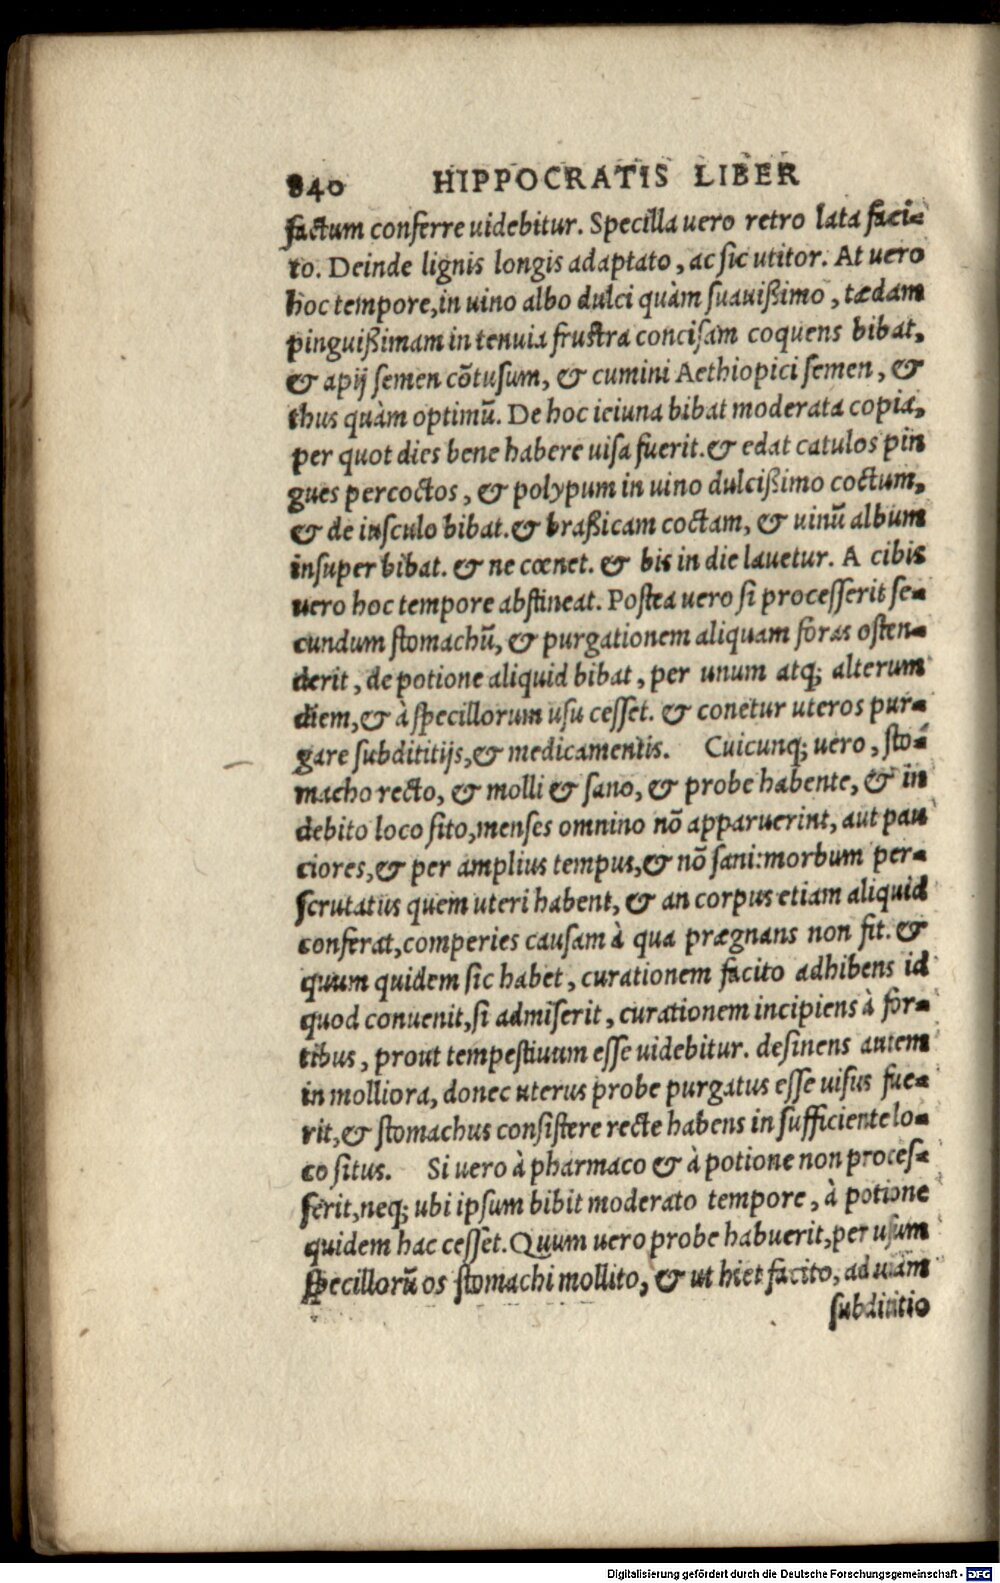 840 HIPPOCRATIS LIBER
factum conferre uidebitur. Specilla uero retro lata faci-
to. Deinde lignis longis adaptato, ac sic utitor. At uero
hoc tempore, in uino albo dulci quàm suauißimo, tædam
pinguißimam in tenuia frustra concisam coquens bibat,
& apij semen cõtusum, & cumini Aethiopici semen, &
thus quàm optimũ. De hoc ieiuna bibat moderata copia,
per quot dies bene habere uisa fuerit. & edat catulos pin
gues percoctos, & polypum in uino dulcißimo coctum,
& de iusculo bibat. & braßicam coctam, & uinũ album
insuper bibat. & ne cœnet. & bis in die lauetur. A cibis
uero hoc tempore abstineat. Postea uero si processerit se-
cundum stomachũ, & purgationem aliquam foras osten-
derit, de potione aliquid bibat, per unum atq; alterum
diem, & à specillorum usu cesset. & conetur uteros pur-
gare subdititijs, & medicamentis. Cuicunq; uero, sto-
macho recto, & molli & sano, & probe habente, & in
debito loco sito, menses omnino nõ apparuerint, aut pau
ciores, & per amplius tempus, & nõ sani: morbum per-
scrutatus quem uteri habent, & an corpus etiam aliquid
conferat, comperies causam à qua prægnans non fit. &
quum quidem sic habet, curationem facito adhibens id
quod conuenit, si admiserit, curationem incipiens à for-
tibus, prout tempestiuum esse uidebitur. desinens autem
in molliora, donec uterus probe purgatus esse uisus fue-
rit, & stomachus consistere recte habens in sufficiente lo-
co situs. Si uero à pharmaco & à potione non proces-
serit, neq; ubi ipsum bibit moderato tempore, à potione
quidem hac cesset. Quum uero probe habuerit, per usum
specillorũ os stomachi mollito, & ut hiet facito, ad uiam
subdititio
Digitalisierung gefördert durch die Deutsche Forschungsgemeinschaft - DFG